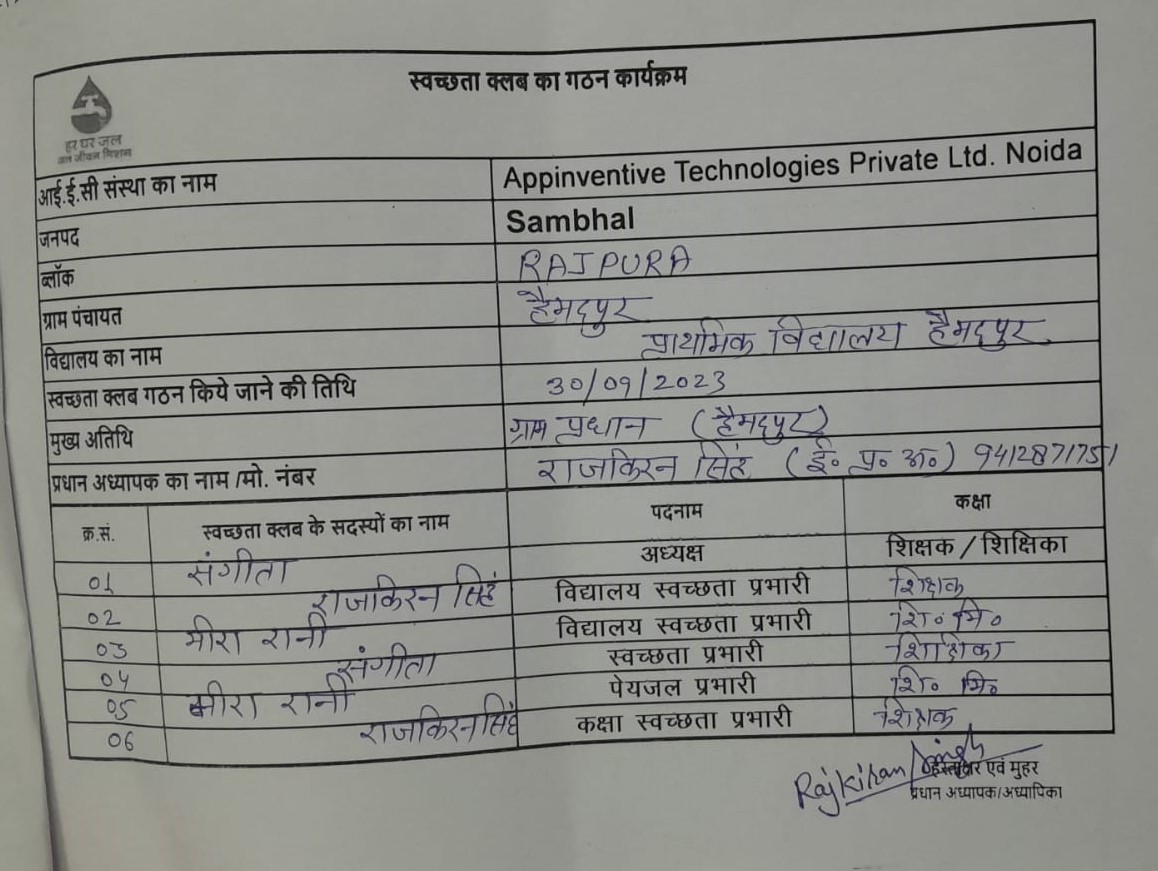 हर घर जल
जल जीवन मिशन
स्वच्छता क्लब का गठन कार्यक्रम
आई.ई.सी संस्था का नाम Appinventive Technologies Private Ltd. Noida
जनपद Sambhal
ब्लॉक RAJPURA
ग्राम पंचायत हैमदपुर
विद्यालय का नाम प्राथमिक विद्यालय हैमदपुर
स्वच्छता क्लब गठन किये जाने की तिथि 30/09/2023
मुख्य अतिथि ग्राम प्रधान (हैमदपुर)
प्रधान अध्यापक का नाम /मो. नंबर राजकिरन सिंह (ई० प्र० अ०) 9412871751
क्र.सं. स्वच्छता क्लब के सदस्यों का नाम पदनाम कक्षा
01 संगीता अध्यक्ष शिक्षक / शिक्षिका
02 राजकिरन सिंह विद्यालय स्वच्छता प्रभारी शिक्षक
03 मीरा रानी विद्यालय स्वच्छता प्रभारी शि० मि०
04 संगीता स्वच्छता प्रभारी शिक्षिका
05 मीरा रानी पेयजल प्रभारी शि० मि०
06 राजकिरन सिंह कक्षा स्वच्छता प्रभारी शिक्षक
Rajkiran Singh
हस्ताक्षर एवं मुहर
प्रधान अध्यापक/अध्यापिका